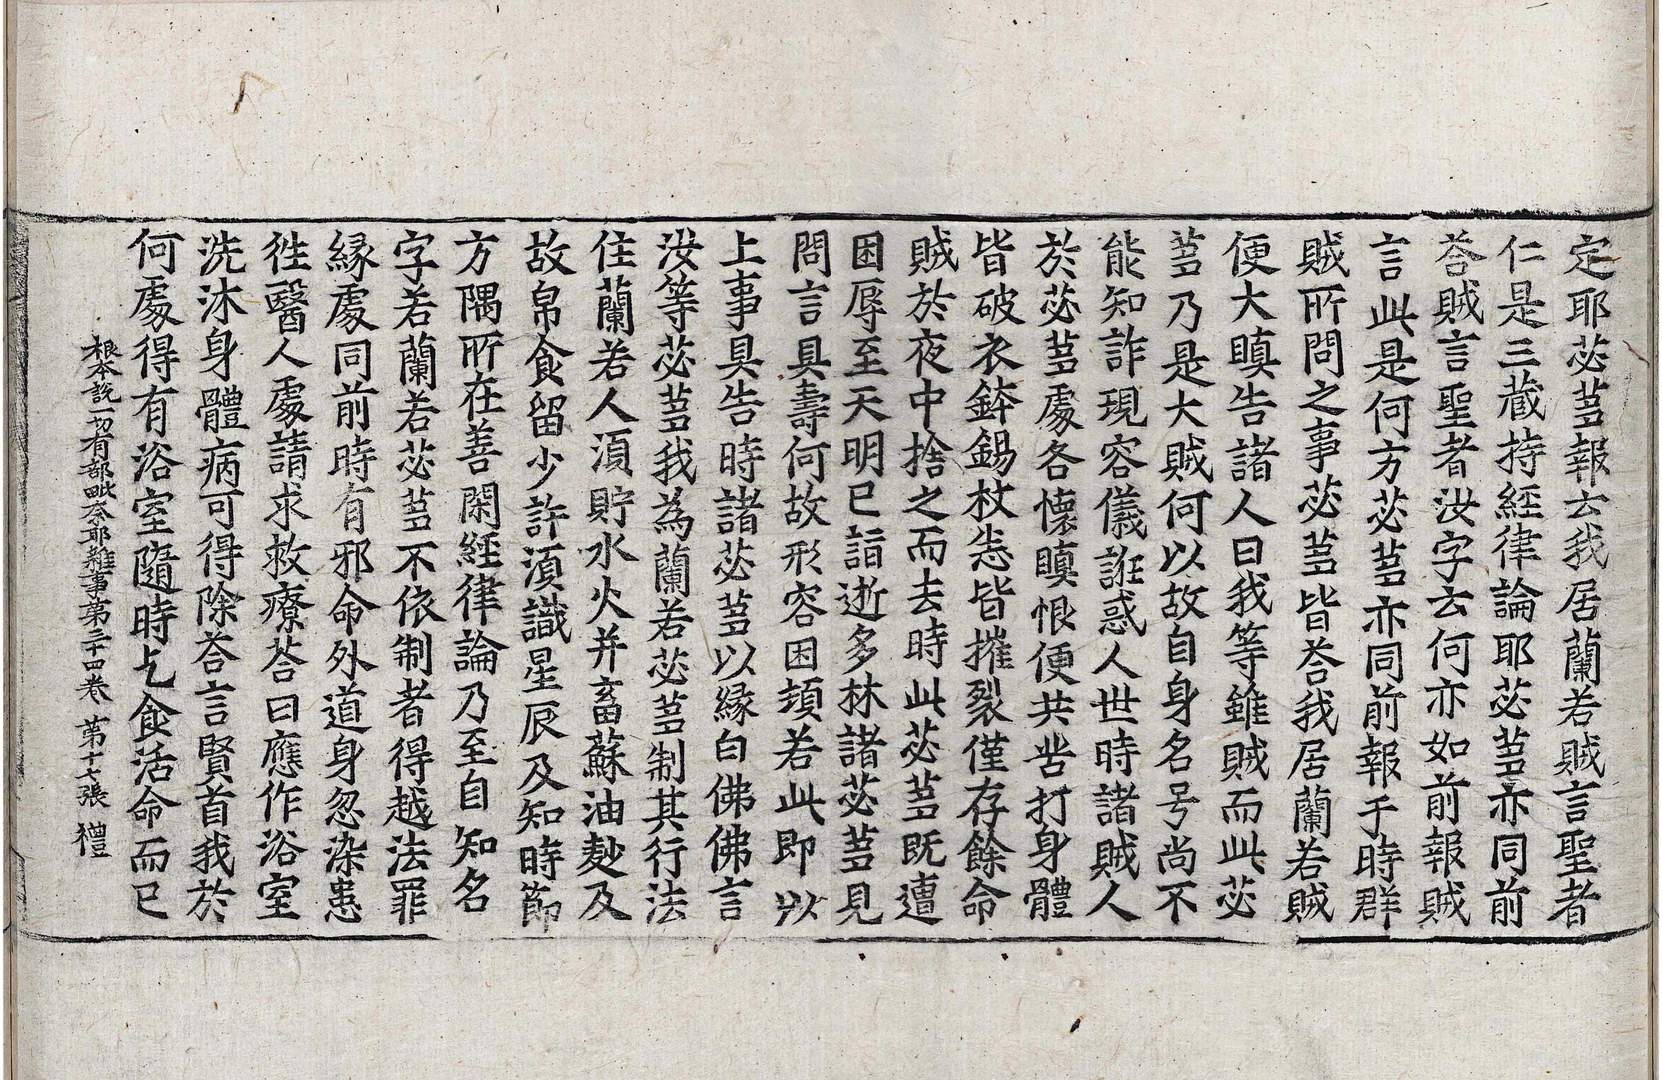 定耶苾蒭報云我居蘭若賊言聖者
仁是三藏持經律論耶苾蒭亦同前
荅賊言聖者汝字云何亦如前報賊
言此是何方苾蒭亦同前報于時群
賊所問之事苾蒭皆荅我居蘭若賊
便大瞋告諸人曰我等雖賊而此苾
蒭乃是大賊何以故自身名号尚不
能知詐現容儀誑惑人世時諸賊人
於苾蒭處各懷瞋恨便共苦打身體
皆破衣鉢錫杖悉皆摧裂僅存餘命
賊於夜中捨之而去時此苾蒭既遭
困辱至天明已詣逝多林諸苾蒭見
問言具壽何故形容困頓若此即以
上事具告時諸苾蒭以緣白佛佛言
汝等苾蒭我為蘭若苾蒭制其行法
住蘭若人湏貯水火并畜蘇油麨及
故帛食留少許湏識星辰及知時節
方隅所在善閑經律論乃至自知名
字若蘭若苾蒭不依制者得越法罪
緣處同前時有邪命外道身忽染患
徃醫人處請求救療荅曰應作浴室
洗沐身體病可得除荅言賢首我於
何處得有浴室隨時乞食活命而已
根本說一切有部毗奈耶雜事第三十四卷 第十七張 禮